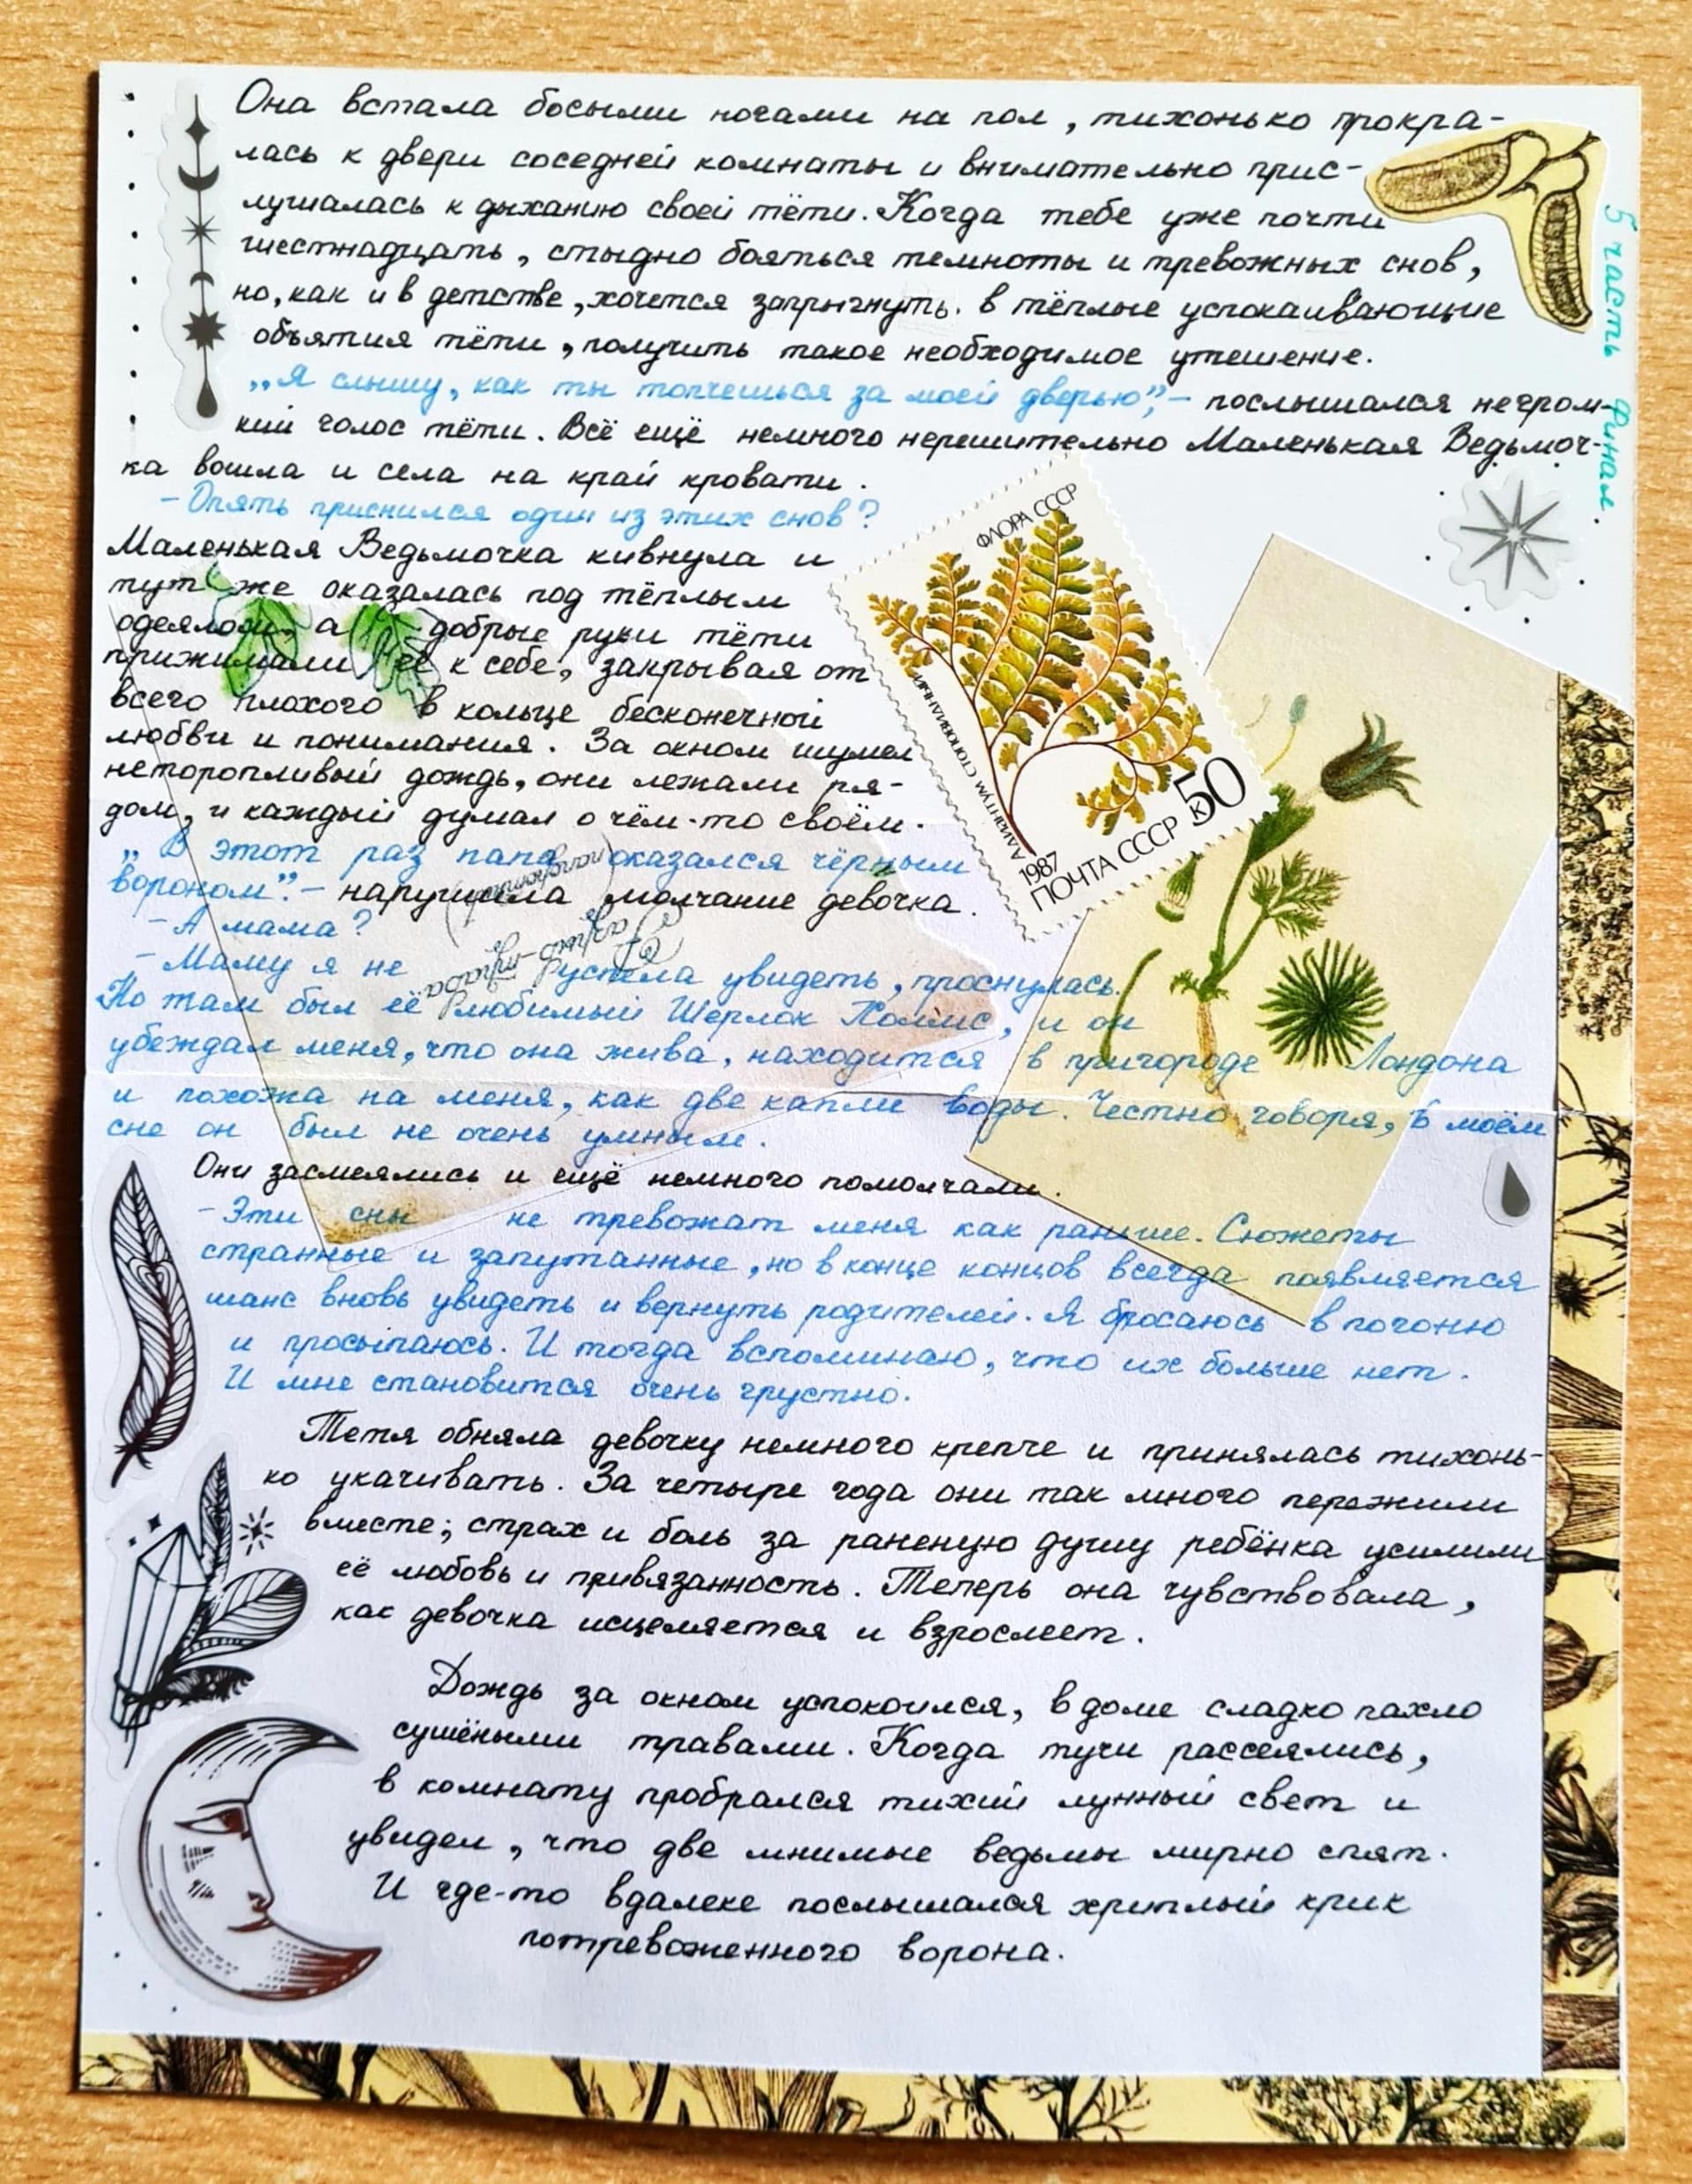 Она встала босыми ногами на пол, тихонько прокра-
лась к двери соседней комнаты и внимательно прис-
лушалась к дыханию своей тёти. Когда тебе уже почти
шестнадцать, стыдно бояться темноты и тревожных снов,
но, как и в детстве, хочется запрыгнуть в тёплые успокаивающие
объятия тёти, получить такое необходимое утешение.
„Я слышу, как ты топчешься за моей дверью”, – послышался негром-
кий голос тёти. Всё ещё немного нерешительно Маленькая Ведьмоч-
ка вошла и села на край кровати.
– Опять приснился один из этих снов?
Маленькая Ведьмочка кивнула и
тут же оказалась под тёплым
одеялом, а добрые руки тёти
прижимали её к себе, закрывая от
всего плохого в кольце бесконечной
любви и понимания. За окном шумел
неторопливый дождь, они лежали ря-
дом, и каждый думал о чём-то своём.
„В этот раз папа оказался чёрным
вороном”. – нарушила молчание девочка.
– А мама?
– Маму я не успела увидеть, проснулась.
Но там был её любимый Шерлок Холмс, и он
убеждал меня, что она жива, находится в пригороде Лондона
и похожа на меня, как две капли воды. Честно говоря, в моём
сне он был не очень умным.
Они засмеялись и ещё немного помолчали.
– Эти сны не тревожат меня как раньше. Сюжеты
странные и запутанные, но в конце концов всегда появляется
шанс вновь увидеть и вернуть родителей. Я бросаюсь в погоню
и просыпаюсь. И тогда вспоминаю, что их больше нет.
И мне становится очень грустно.
Тетя обняла девочку немного крепче и принялась тихонь-
ко укачивать. За четыре года они так много пережили
вместе; страх и боль за раненую душу ребёнка усилили
её любовь и привязанность. Теперь она чувствовала,
как девочка исцеляется и взрослеет.
Дождь за окном успокоился, в доме сладко пахло
сушёными травами. Когда тучи рассеялись,
в комнату пробрался тихий лунный свет и
увидел, что две мнимые ведьмы мирно спят.
И где-то вдалеке послышался хриплый крик
потревоженного ворона.
5 часть Финал.
ФЛОРА СССР
АДИАНТУМ СТОПОВИДНЫЙ
1987
ПОЧТА СССР
50
к